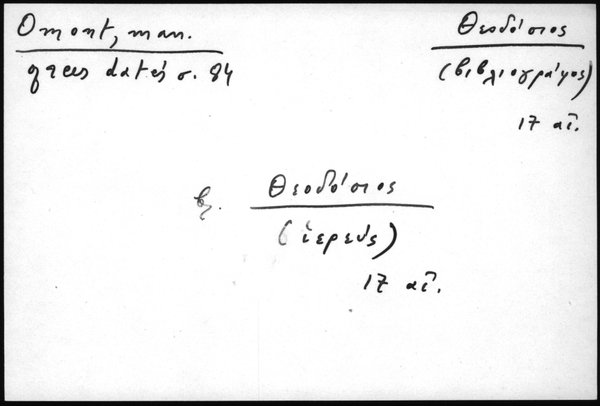 Omont, man.
grecs datés σ. 84
Θεοδόσιος
(βιβλιογράφος)
17 αἰ.
βλ. Θεοδόσιος
(ἱερεύς)
17 αἰ.